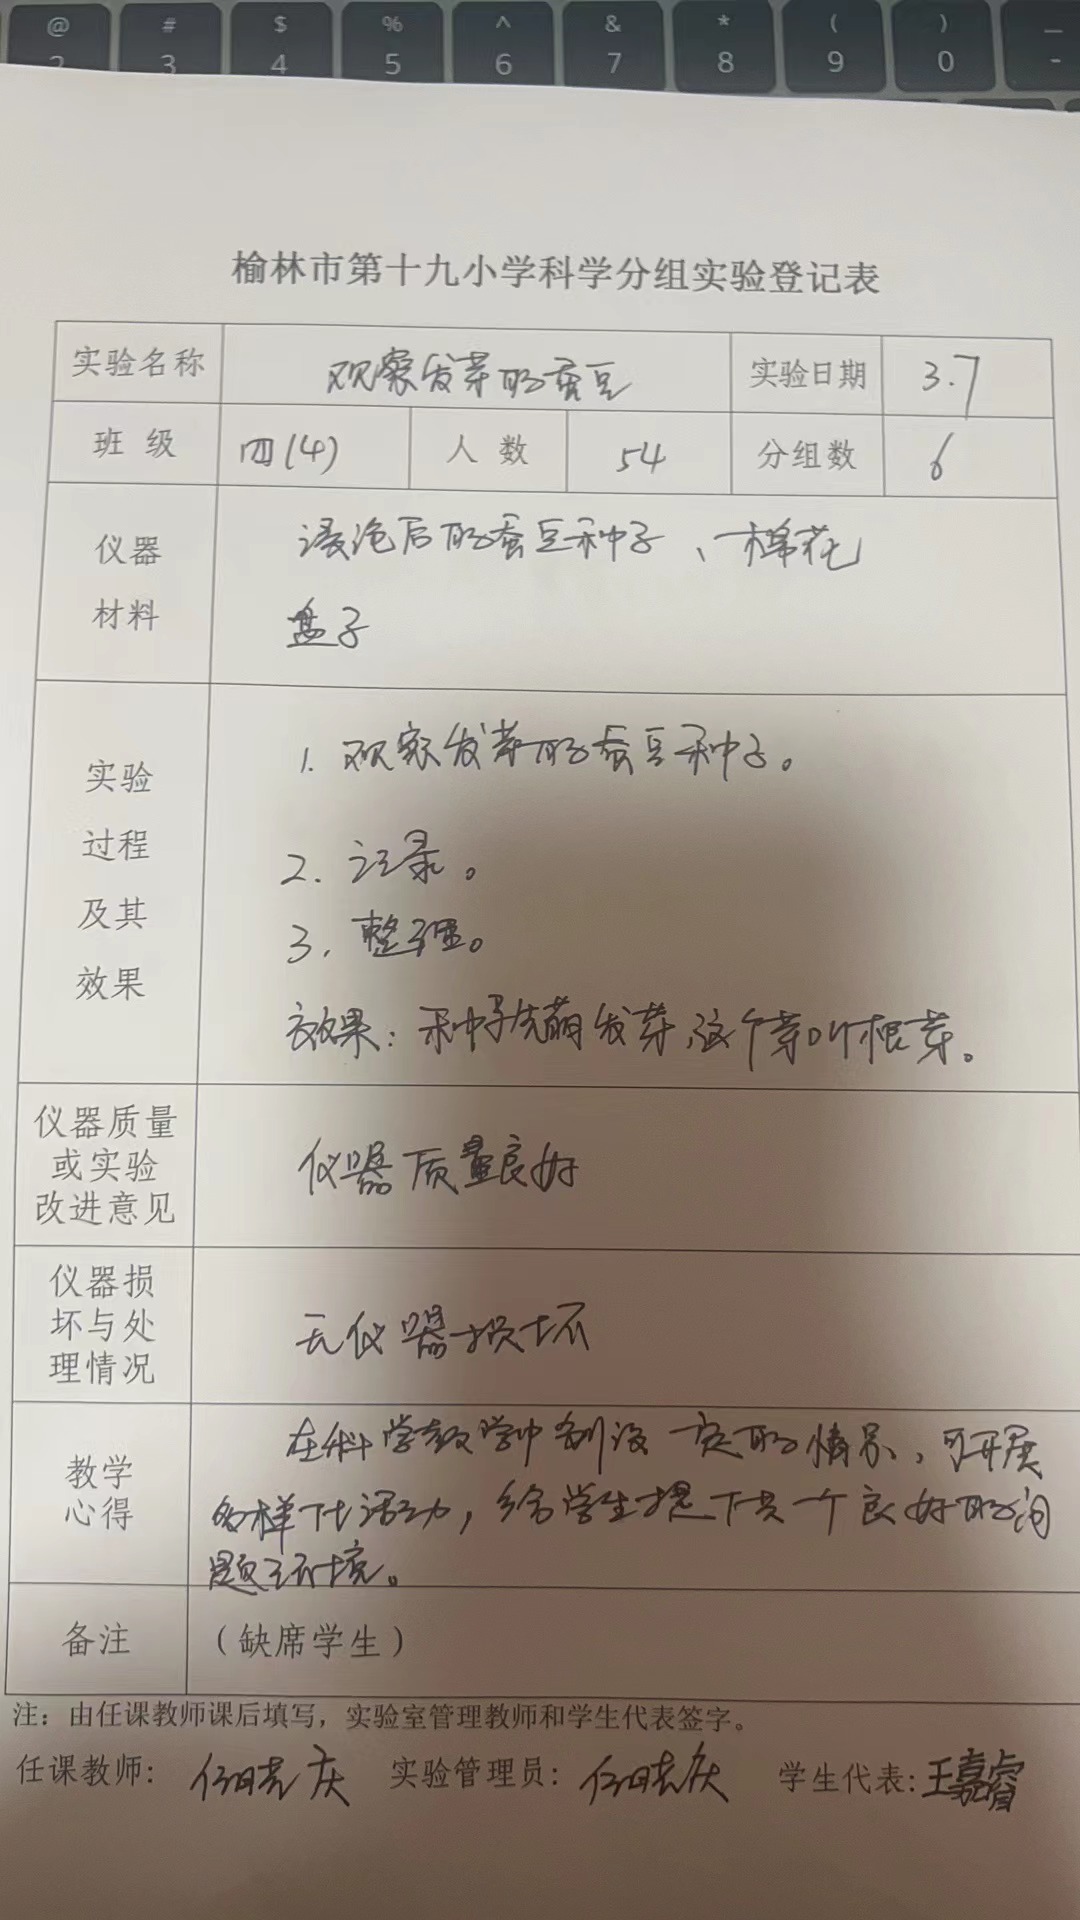 @ # $ % ^ & * ( ) _
2 3 4 5 6 7 8 9 0 -
榆林市第十九小学科学分组实验登记表
实验名称 观察发芽的蚕豆 实验日期 3.7
班 级 四(4) 人 数 54 分组数 6
仪器 浸泡后的蚕豆种子、棉花
材料 盒子
实验 1. 观察发芽的蚕豆种子。
过程 2. 记录。
及其 3. 整理。
效果 效果：种子先萌发芽,这个芽叫根芽。
仪器质量
或实验 仪器质量良好
改进意见
仪器损
坏与处 无仪器损坏
理情况
教学 在科学教学中创设一定的情景，可开展
心得 多样下比活动，给学生提下共一个良好的问
题环境。
备注 （缺席学生）
注：由任课教师课后填写，实验室管理教师和学生代表签字。
任课教师： 实验管理员： 学生代表：王嘉睿